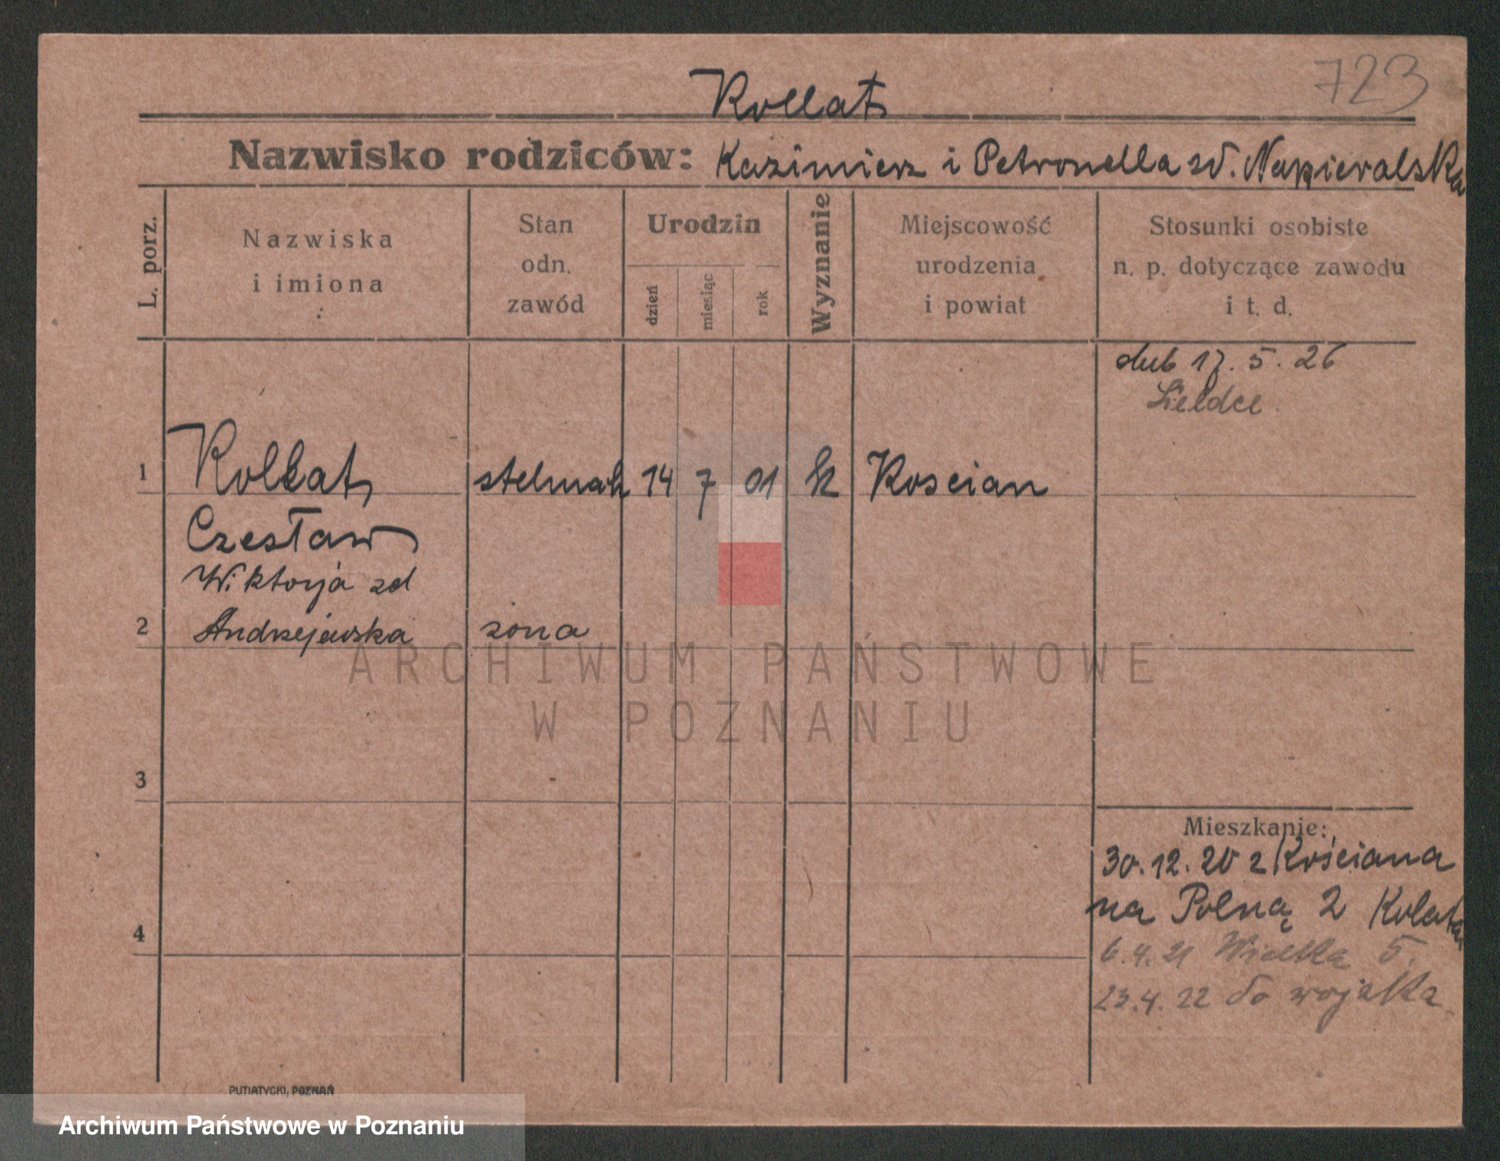 723
Kollat
Nazwisko rodziców: Kazimierz i Petronella zd. Napieralska
L. porz.
Nazwiska
i imiona
Stan
odn.
zawód
Urodzin
dzień
miesiąc
rok
Wyznanie
Miejscowość
urodzenia
i powiat
Stosunki osobiste
n. p. dotyczące zawodu
i t. d.
ślub 17. 5. 26
1 Kollat stelmach 14 7 01 k Koscian
Czesław
Wiktorja zd
2 Andrzejewska żona
ARCHIWUM PAŃSTWOWE
W POZNANIU
3
Mieszkanie:
30.12.20 z Kościana
na Polną 2 Kolata
4
6.4.21 Wielka 5.
23.4.22 do wojska
PUTIATYCKI, POZNAŃ
Archiwum Państwowe w Poznaniu